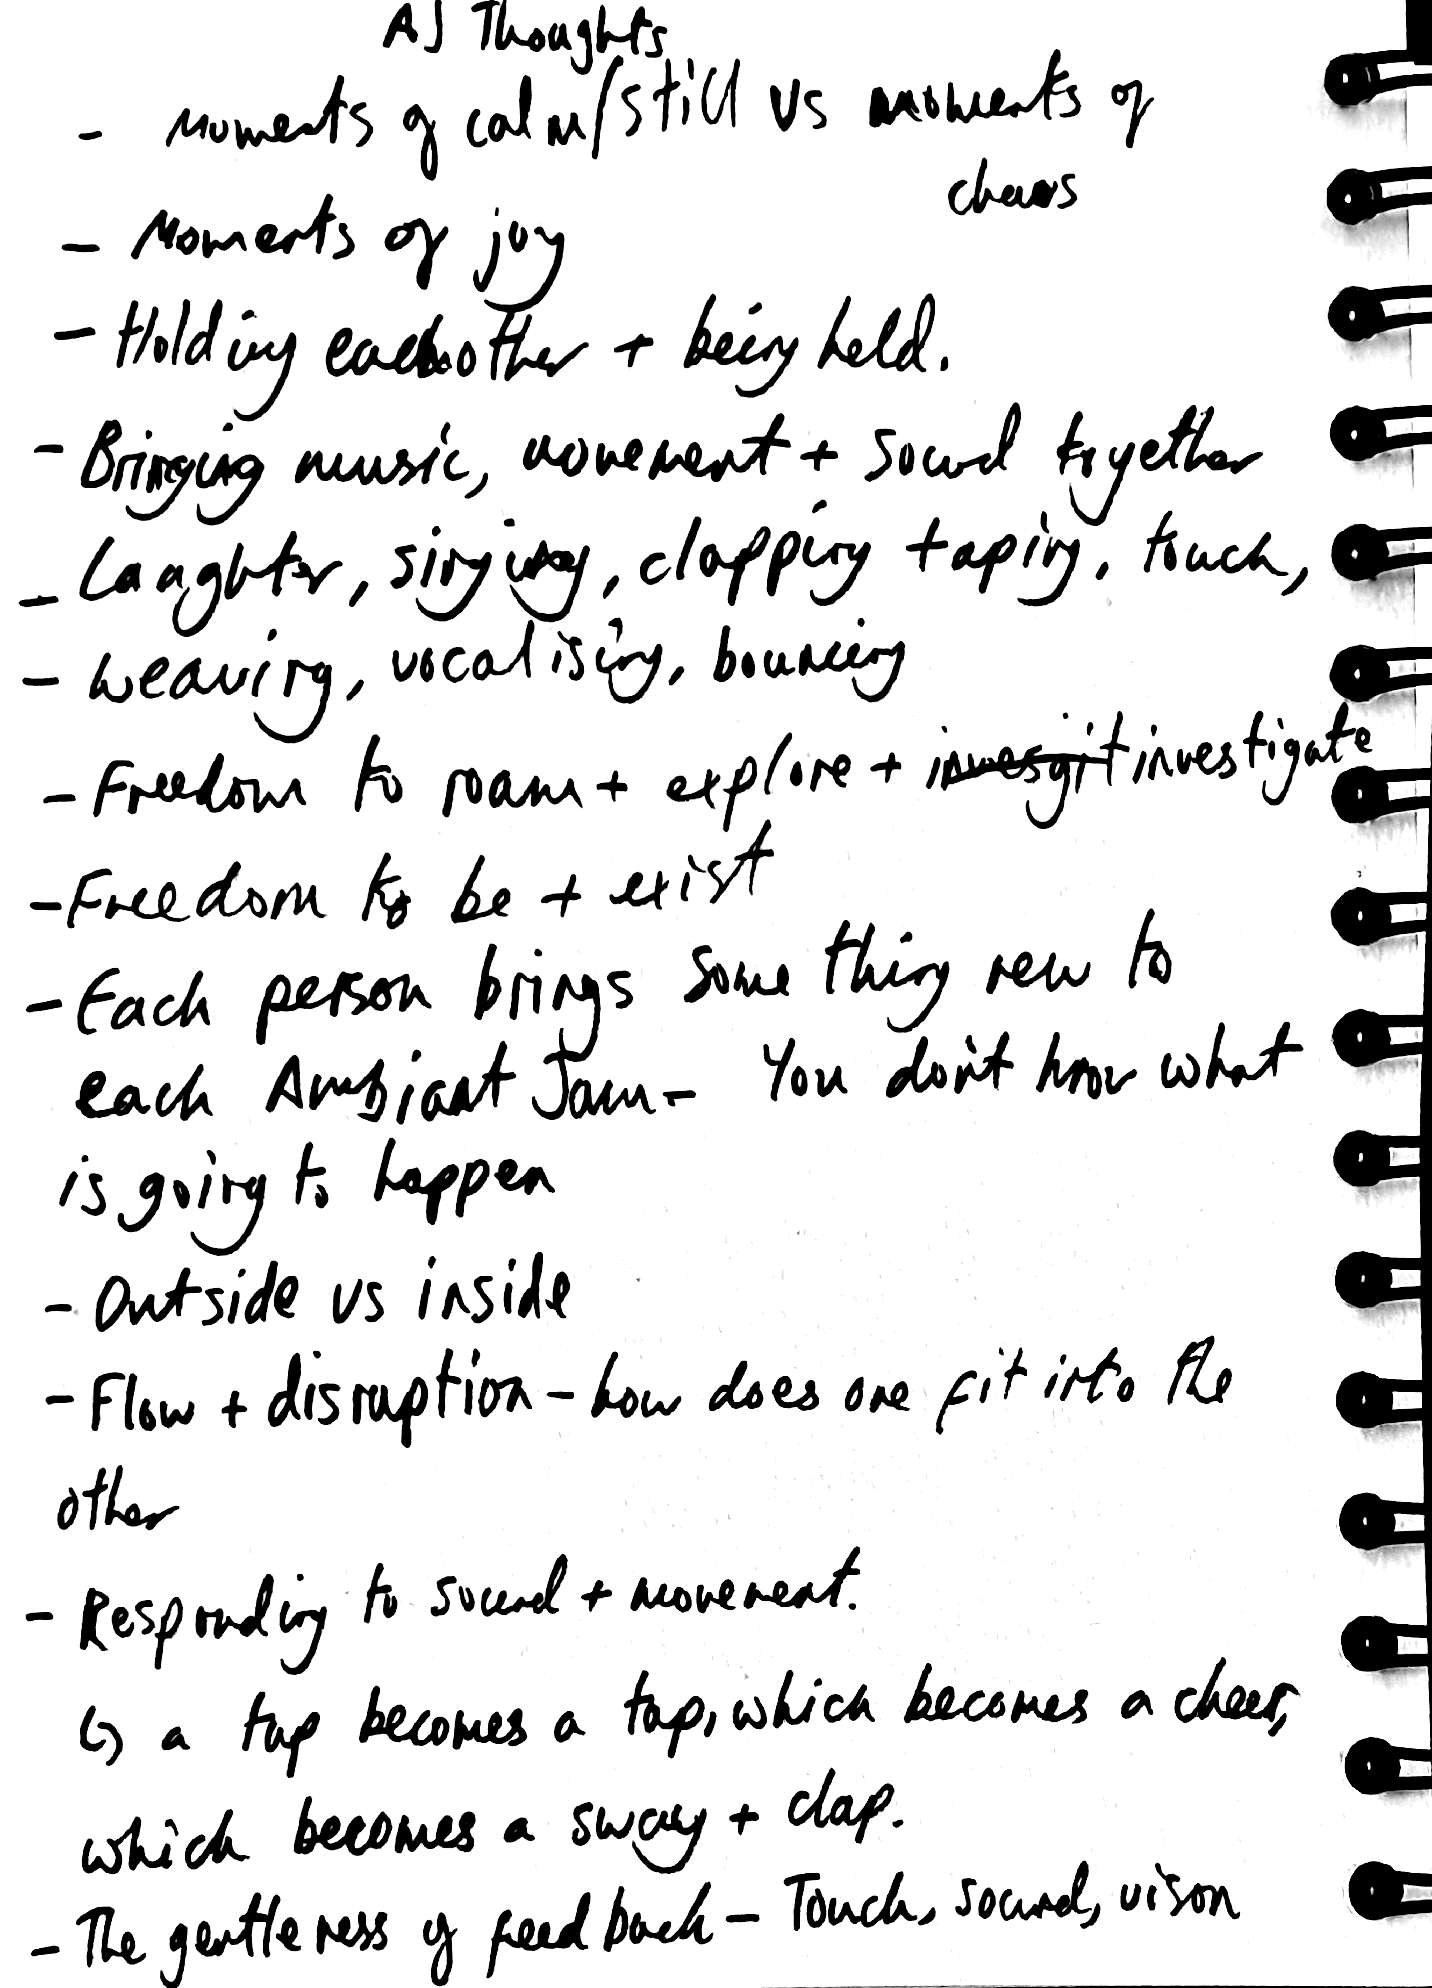 AJ Thoughts
- Moments of calm/still vs moments of
chaos
- Moments of joy
- Holding eachother + being held.
- Bringing music, movement + sound together
- Laughter, singing, clapping taping, touch,
- weaving, vocalising, bouncing
- Freedom to roam + explore + invesgit investigate
- Freedom to be + exist
- Each person brings something new to
each Ambiant Jam - You don't know what
is going to happen
- Outside vs inside
- Flow + disruption - how does one fit into the
other
- Responding to sound + movement.
↳ a tap becomes a tap, which becomes a cheer,
which becomes a sway + clap.
- The gentleness of feedback - Touch, sound, vison